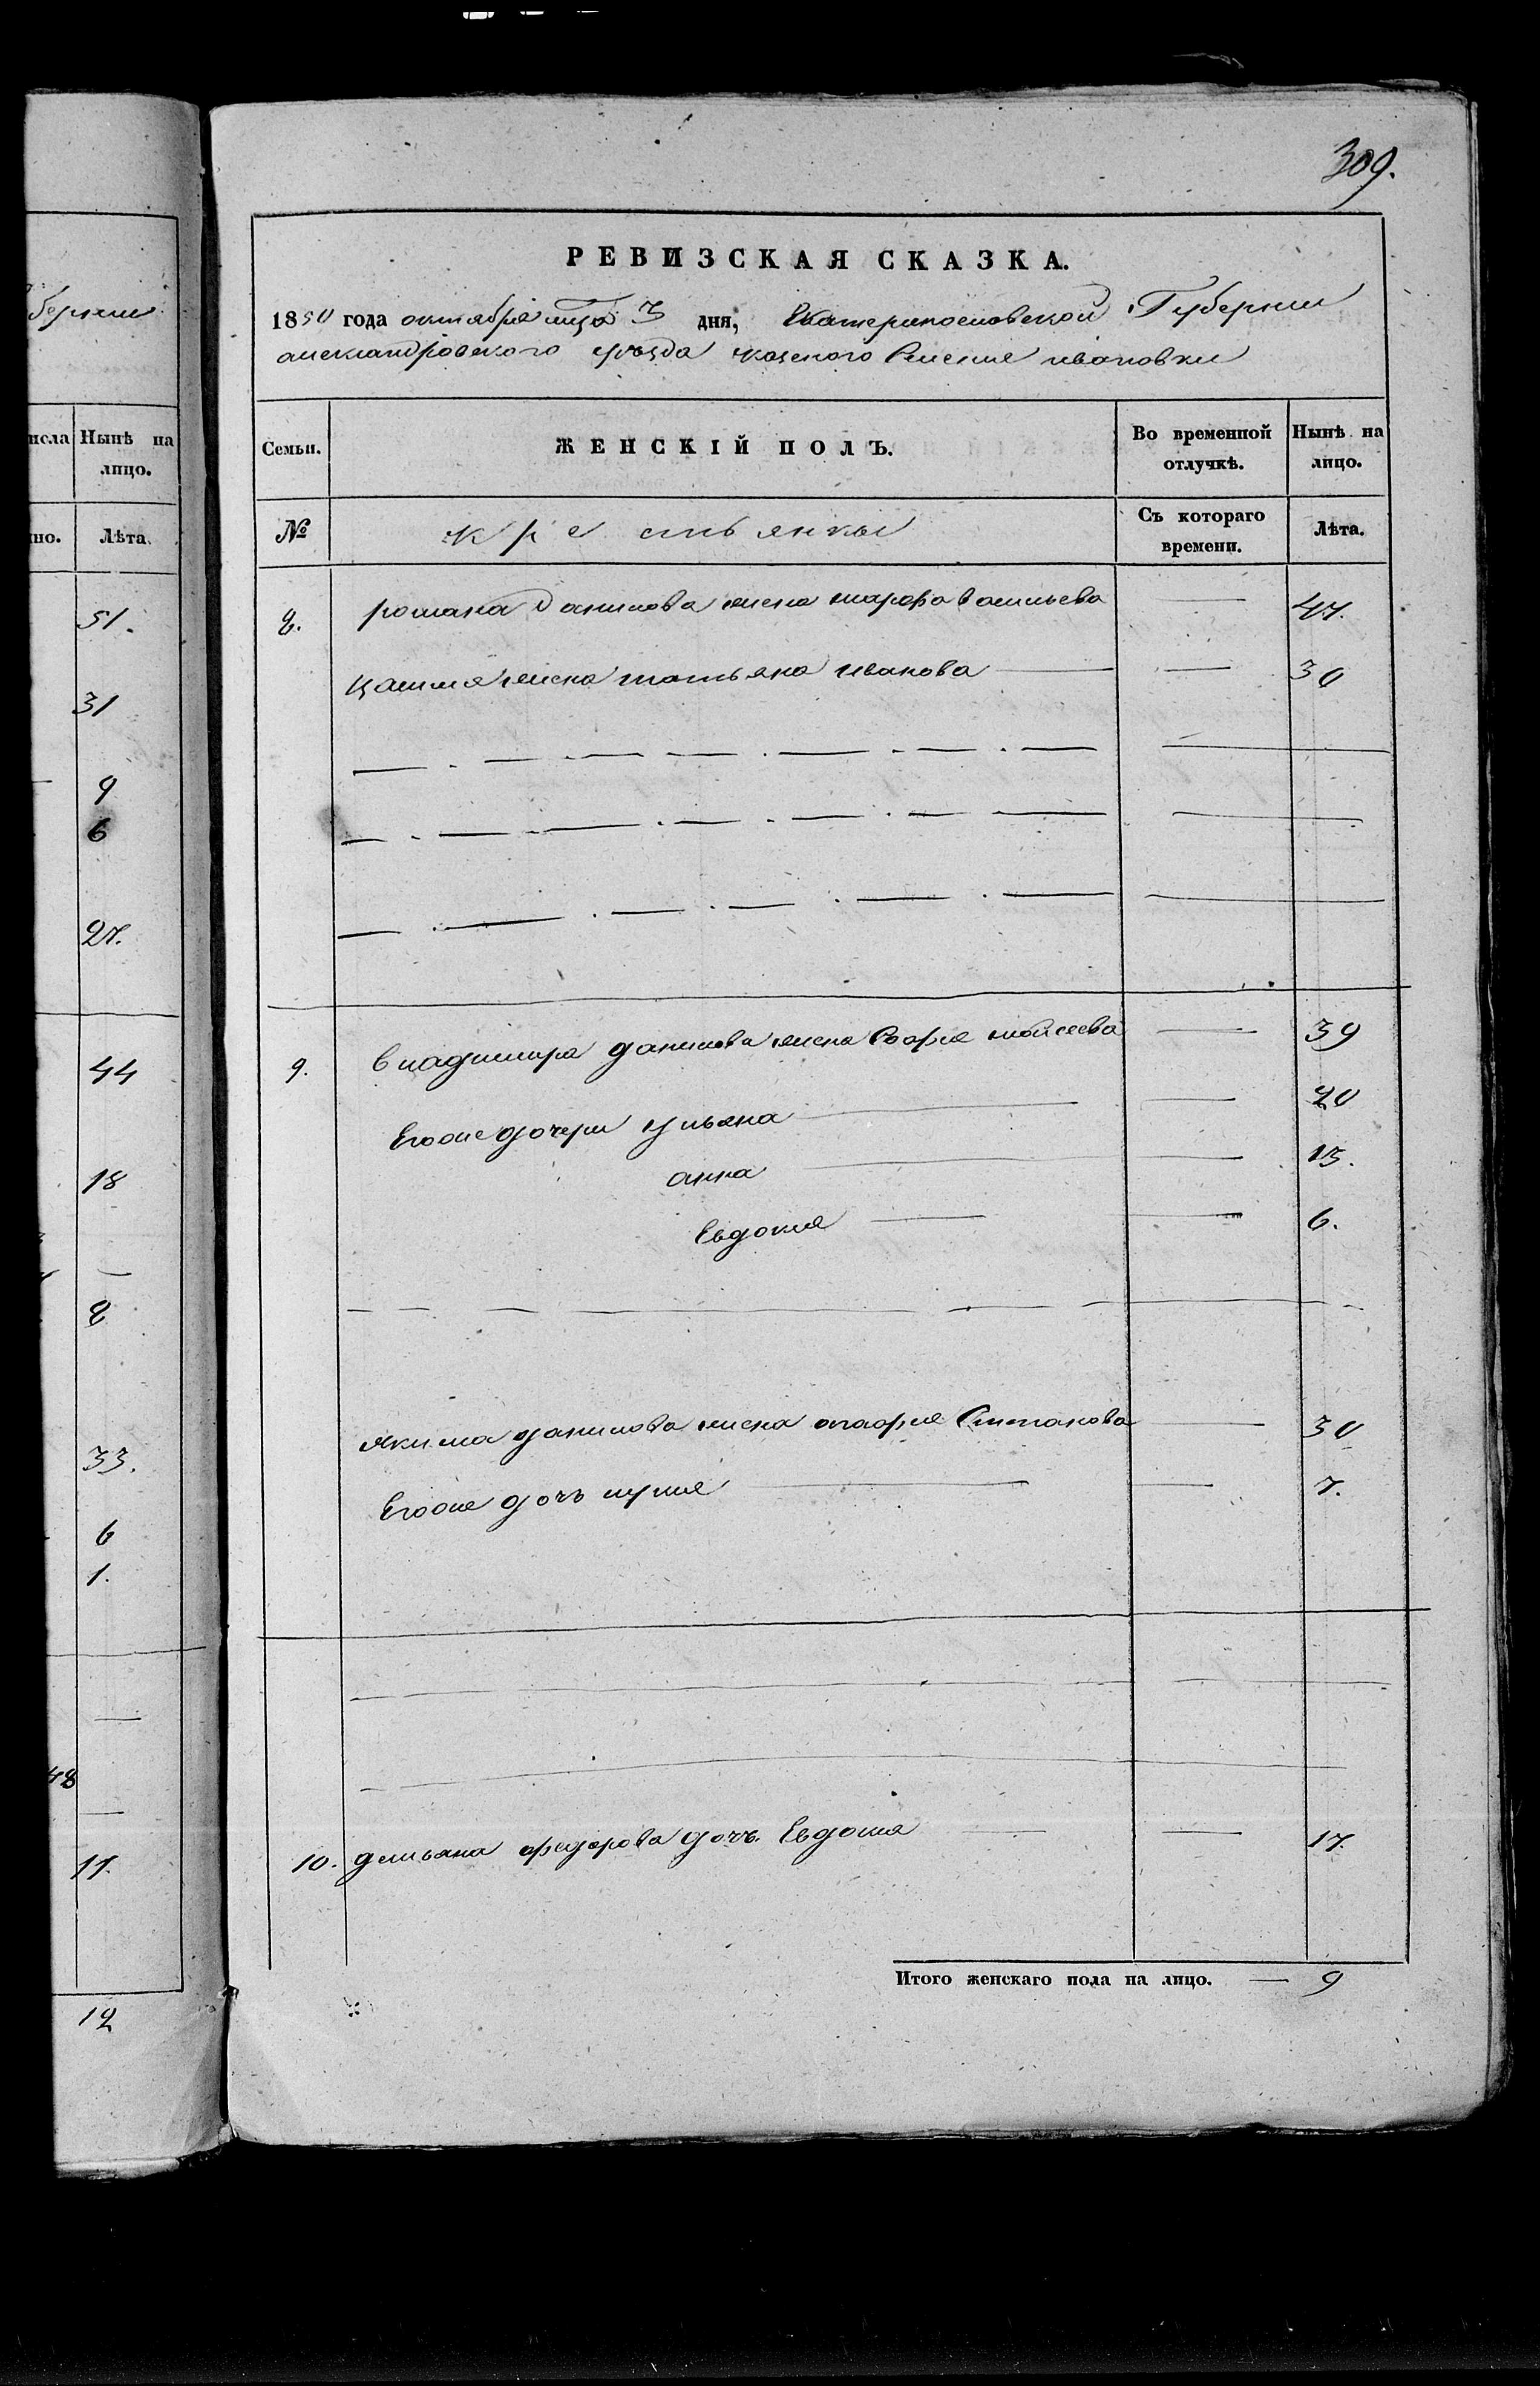 309.
РЕВИЗСКАЯ СКАЗКА.
1850 года октября мца 3 дня, Екатеринославской Губернии
александровского уъзда казеного Селения ивановки
Семьи. ЖЕНСКІЙ ПОЛЪ. Во временной отлучкѣ. Нынѣ на лицо.
№ крестьянки Съ котораго времени. Лѣта.
8. романа данилова жена марфа васильева — 47.
жена татьяна иванова — 30
9. владимира данилова жена София мойсеева — 39
Егоже дочери ульяна — 20
анна — 15.
Евдокия — 6.
якима данилова жена агафия Степанова — 30
Егоже дочь — 7.
10. демьяна федорова дочь Евдокия — 17.
Итого женскаго пола на лицо. — 9
берніи
исла Нынѣ на лицо.
но. Лѣта.
51.
31
9
6
27.
44
18
—
8
33.
6
1.
—
48
—
17.
12